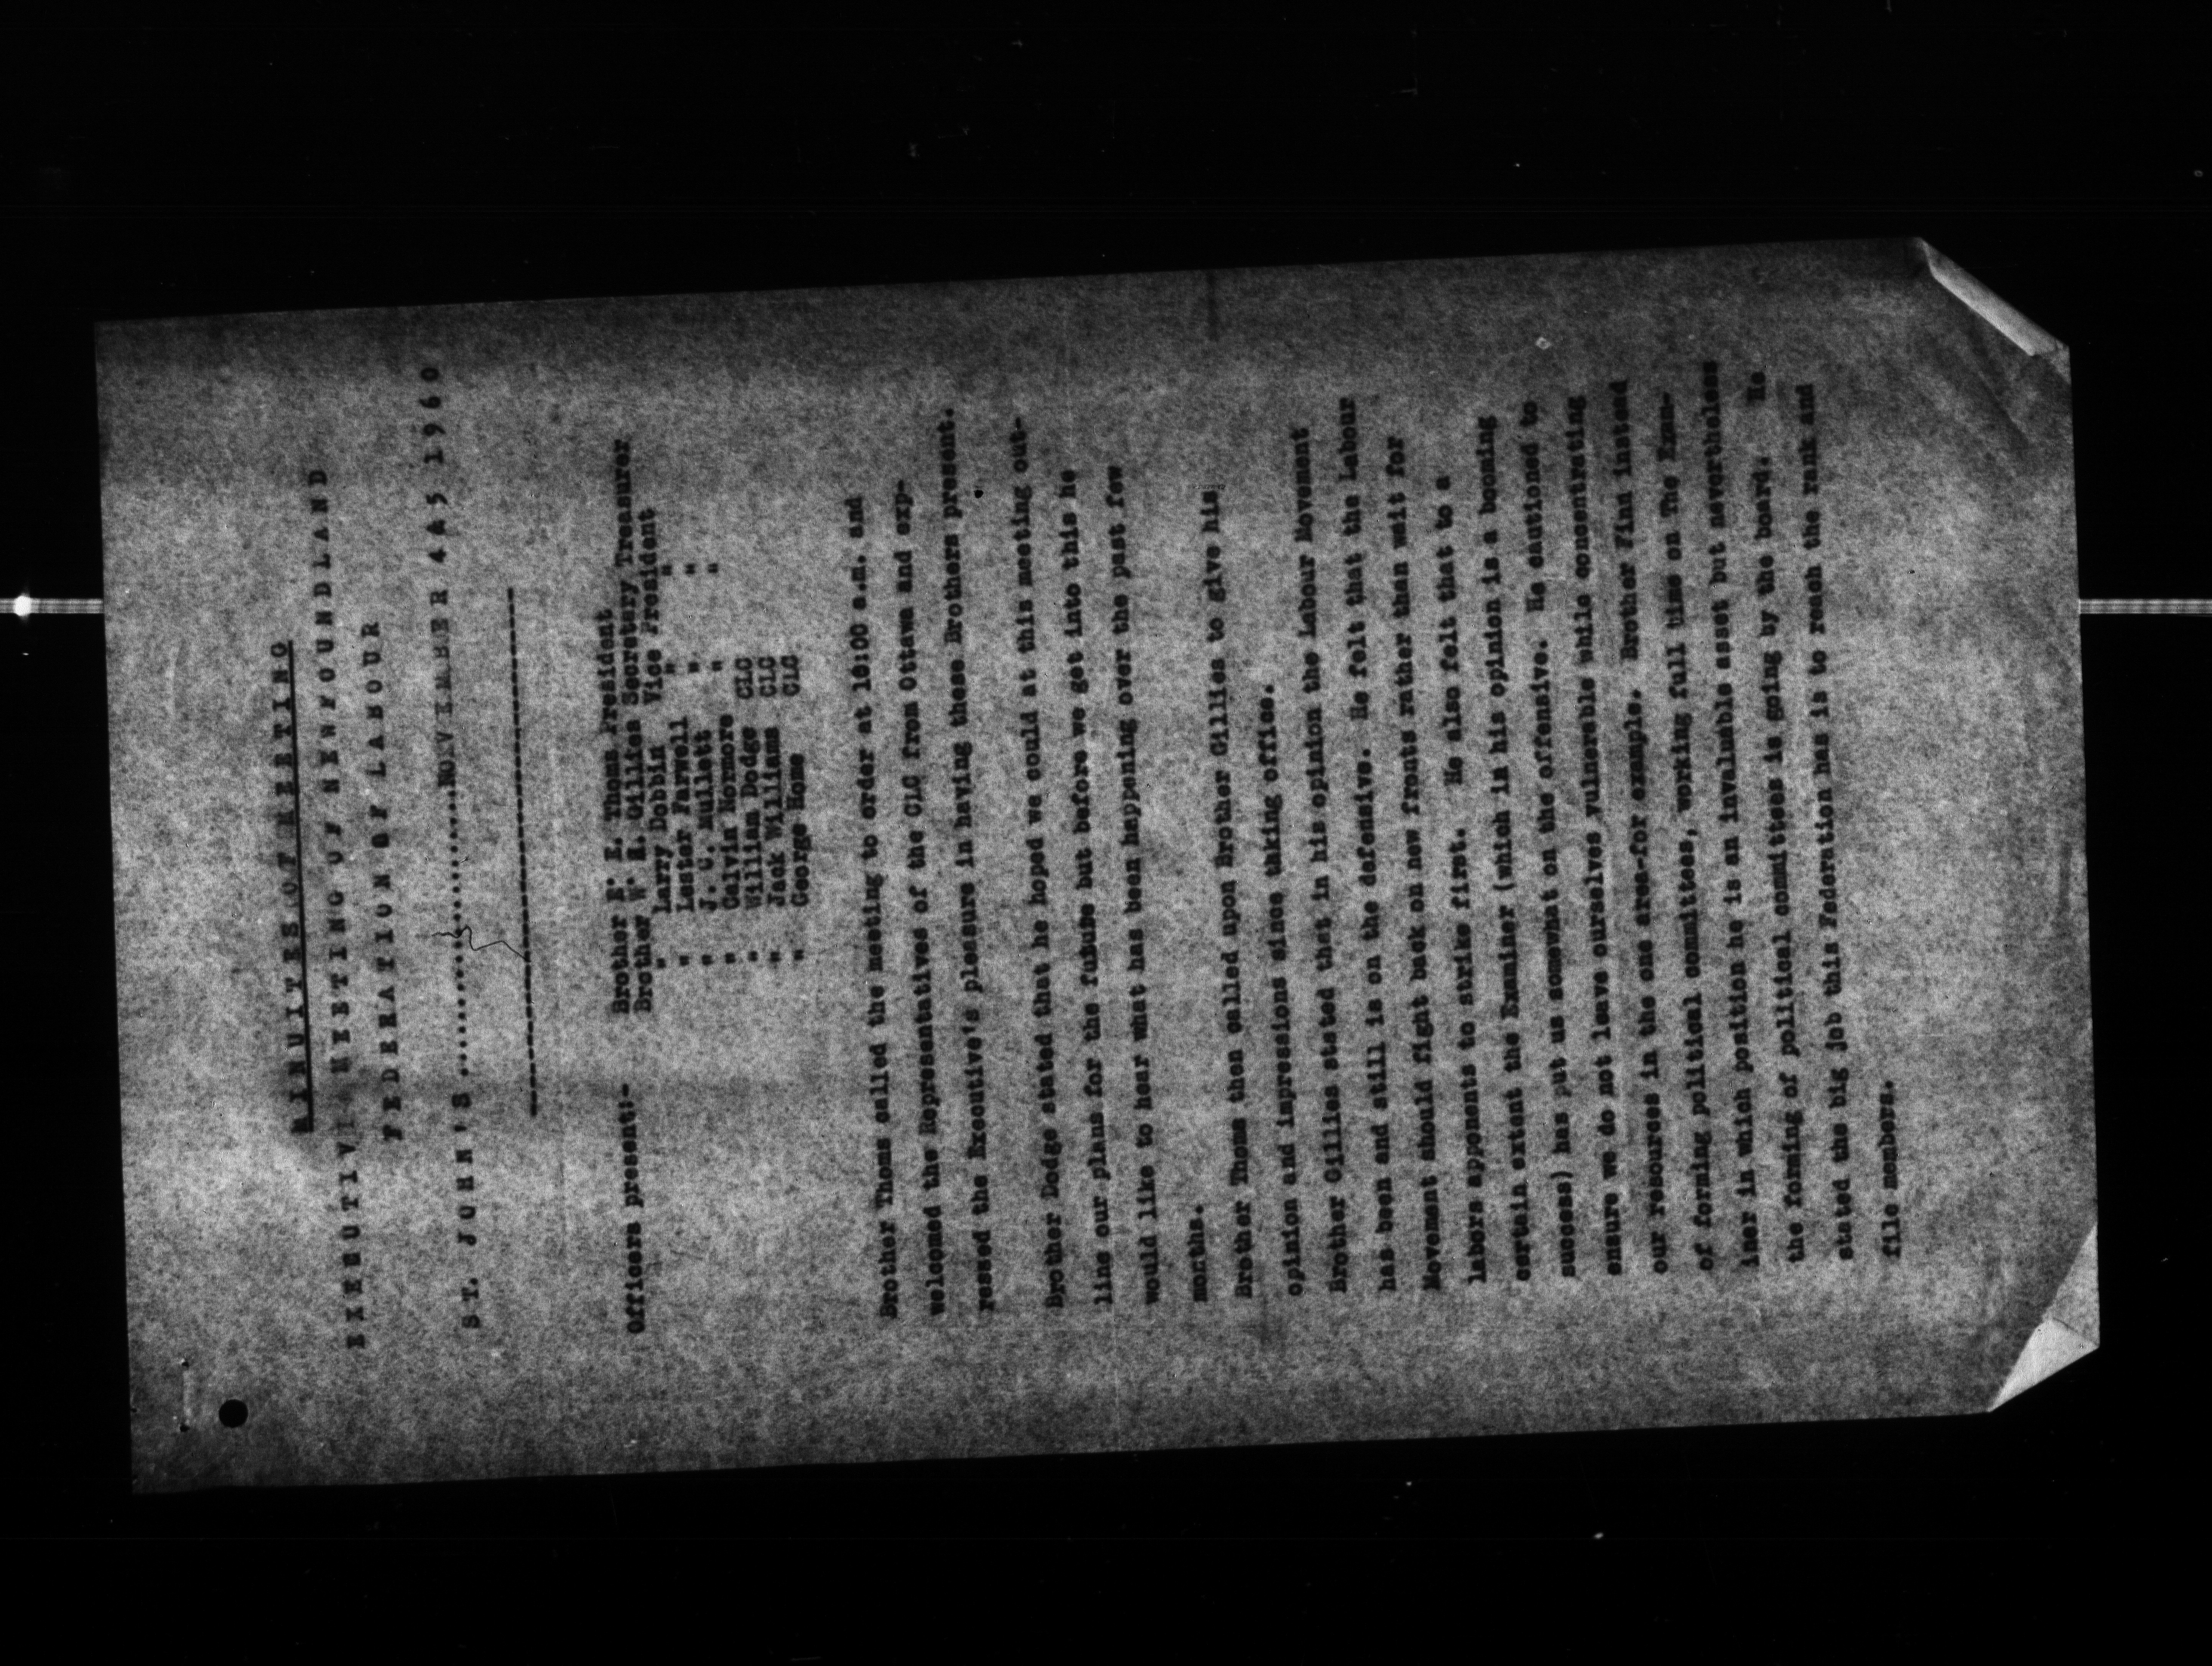 M I N U I T E S O F M E E T I N G
E X E R U T I V E M E E T I N G O F N E W F O U N D L A N D
F E D E R A T I O N O F L A B O U R
S T. J O H N ' S ........................ N O V E M B E R 4 & 5 1 9 6 0
Officers present:- Brother E. Thoms President
Brother W. H. Gillies Secretary Treasurer
" Larry Dobbin Vice President
" Lester Farwell " "
" J. C. Mullett " "
" Calvin Normore " "
" William Dodge CLC
" Jack Williams CLC
" George Home CLC
Brother Thoms called the meeting to order at 10:00 a.m. and
welcomed the Representatives of the CLC from Ottawa and exp-
ressed the Executive's pleasure in having these Brothers present.
Brother Dodge stated that he hoped we could at this meeting out-
line our plans for the future but before we get into this he
would like to hear what has been happening over the past few
months.
Brother Thoms then called upon Brother Gillies to give his
opinion and impressions since taking office.
Brother Gillies stated that in his opinion the Labour Movement
has been and still is on the defensive. He felt that the Labour
Movement should fight back on new fronts rather than wait for
labors apponents to strike first. He also felt that to a
certain extent the Examiner (which in his opinion is a booming
success) has put us somewhat on the offensive. He cautioned to
ensure we do not leave ourselves vulnerable while concentrating
our resources in the one area-for example. Brother Finn instead
of forming political committees, working full time on The Exam-
iner in which position he is an invaluable asset but nevertheless
the forming of political committees is going by the board. He
stated the big job this Federation has is to reach the rank and
file members.